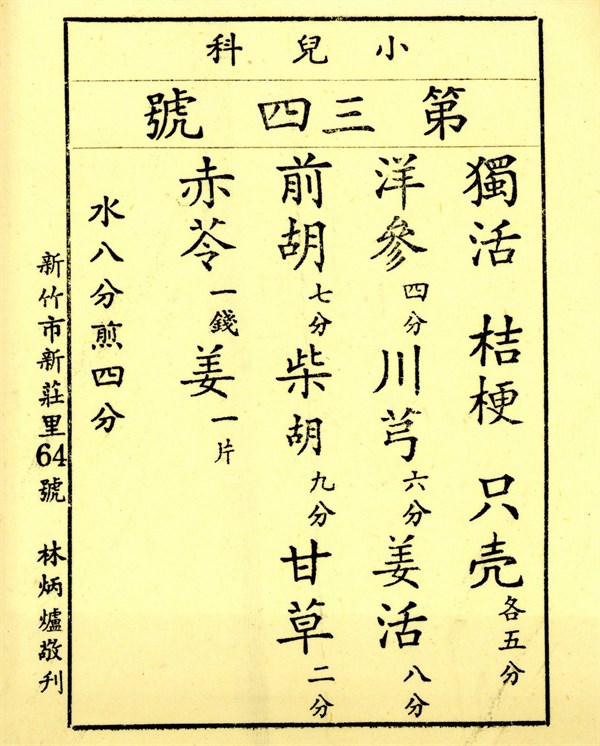 小兒科
第三四號
獨活 桔梗 只壳各五分
洋參四分川芎六分姜活八分
前胡七分柴胡九分甘草二分
赤苓一錢姜一片
水八分煎四分
新竹市新莊里64號 林炳爐敬刊